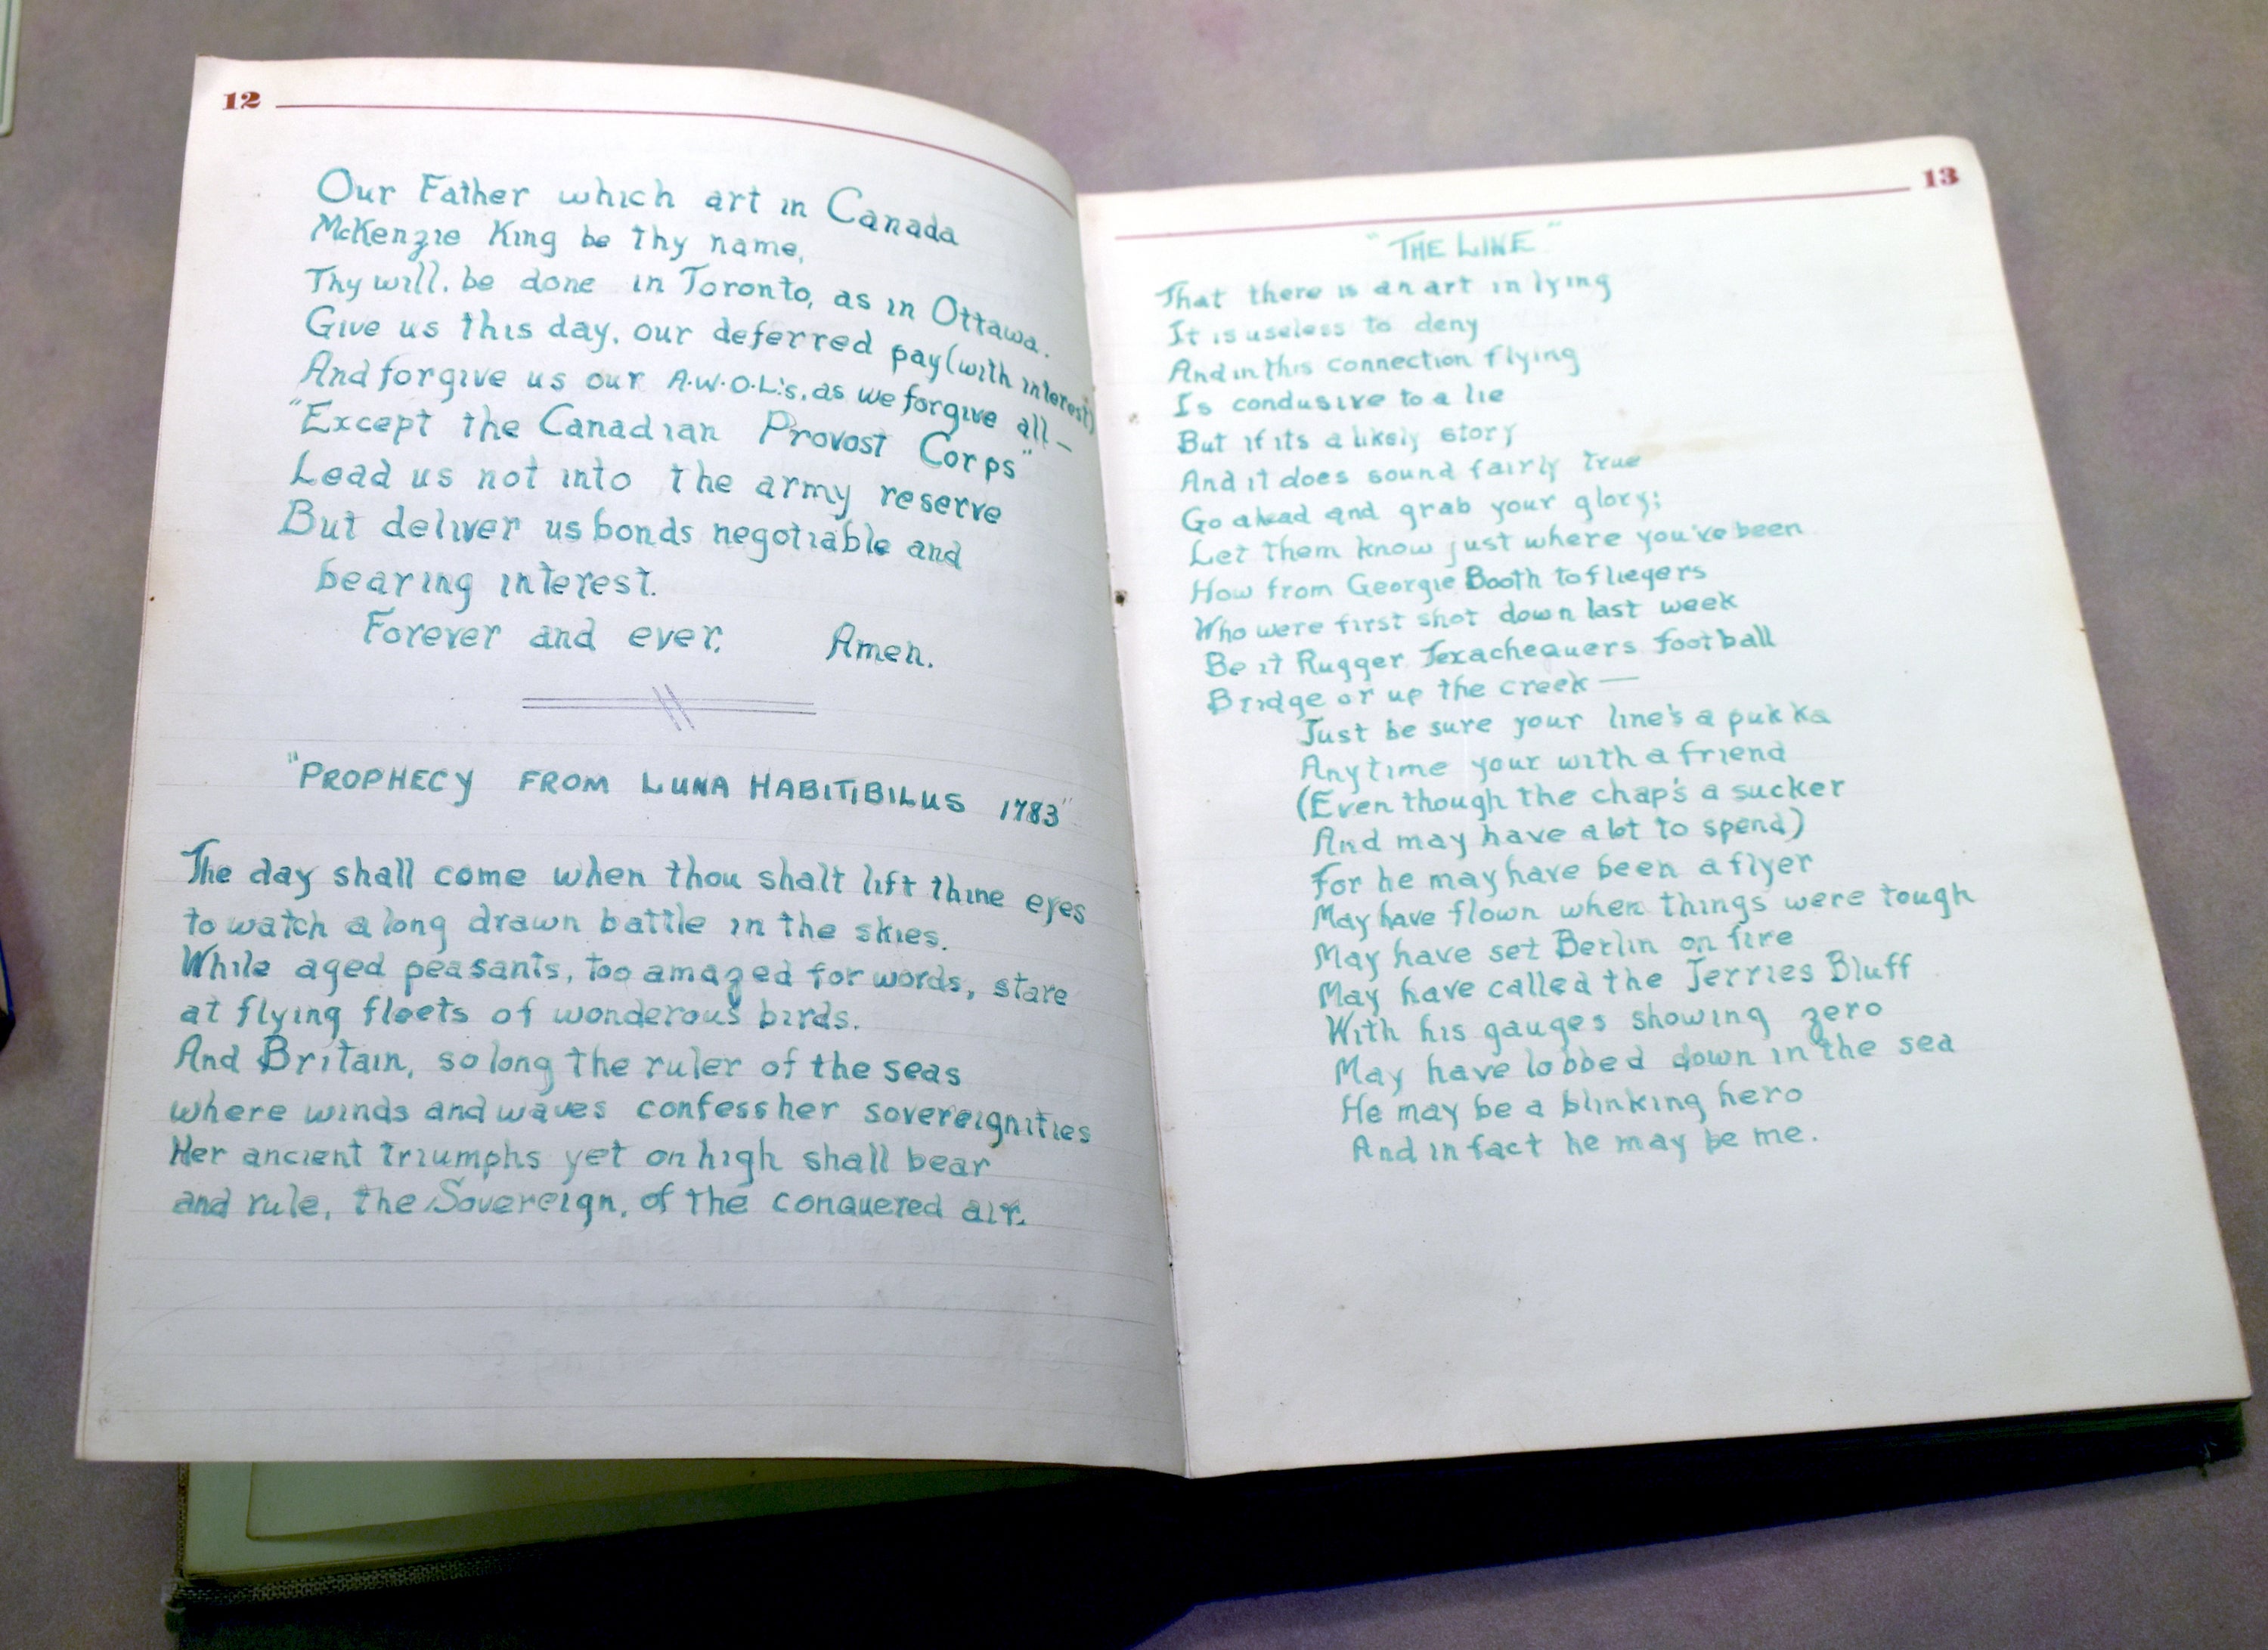 12
Our Father which art in Canada
McKenzie King be thy name,
Thy will. be done in Toronto, as in Ottawa.
Give us this day, our deferred pay (with interest)
And forgive us our A.W.O.L.'s, as we forgive all —
"Except the Canadian Provost Corps"
Lead us not into the army reserve
But deliver us bonds negotiable and
bearing interest.
Forever and ever. Amen.
"PROPHECY FROM LUNA HABITIBILUS 1783"
The day shall come when thou shalt lift thine eyes
to watch a long drawn battle in the skies.
While aged peasants, too amazed for words, stare
at flying fleets of wonderous birds.
And Britain, so long the ruler of the seas
where winds and waves confess her sovereignities
Her ancient triumphs yet on high shall bear
and rule, the Sovereign, of the conquered air.
13
"THE LINE"
That there is an art in lying
It is useless to deny
And in this connection flying
Is condusive to a lie
But if its a likely story
And it does sound fairly true
Go ahead and grab your glory;
Let them know just where you've been
How from Georgie Booth to fliegers
Who were first shot down last week
Be it Rugger Texachequers football
Bridge or up the creek —
Just be sure your line's a pukka
Anytime your with a friend
(Even though the chap's a sucker
And may have a lot to spend)
For he may have been a flyer
May have flown when things were tough
May have set Berlin on fire
May have called the Jerries Bluff
With his gauges showing zero
May have lobbed down in the sea
He may be a blinking hero
And in fact he may be me.